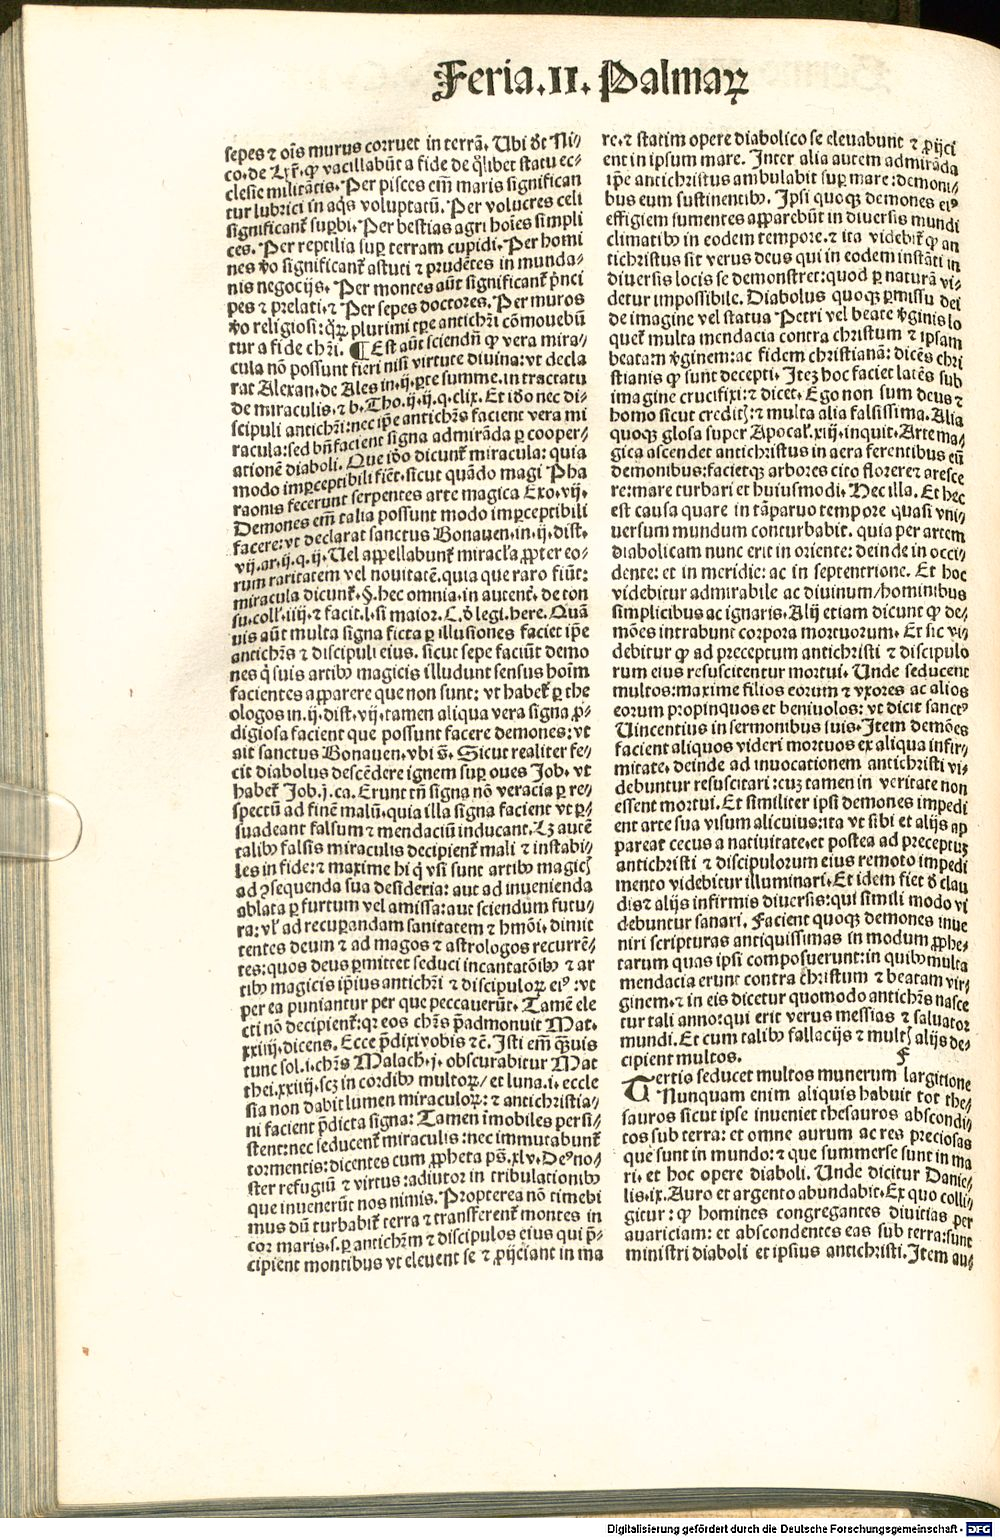 Feria.II. Palmaꝝ
sepes ⁊ oīs murus corruet in terrā. Ubi dt Ni//
co. de Lyr̄. ꝙ vacillabūt a fide de qͥlibet statu ec-
clesie militātis. Per pisces em̄ maris significan
tur lubrici in aqs voluptatū. Per volucres celi
significant̄ suꝑbi. Per bestias agri hoīes simpli
ces. Per reptilia suꝑ terram cupidi. Per homi
nes ꝟo significant̄ astuti ⁊ prudētes in munda-
nis negocijs. Per montes aūt significant̄ pͥnci
pes ⁊ prelati. ⁊ Per sepes doctores. Per muros
ꝟo religiosi: qꝛ plurimi tꝑe antichri cōmouebū
tur a fide chri. ¶ Est aūt sciendū ꝙ vera mira-
cula nō possunt fieri nisi virtute diuina: vt decla
rat Alexan. de Ales in .ij. ꝑte summe. in tractatu
de miraculis. ⁊ b. Tho. ij. ij. q. clix. Et iō nec di-
scipuli antichri: nec ip̄e antichrs facient vera mi
racula: sed bn̄ facient signa admirāda ꝑ cooper-
ationē diaboli. Que iō dicunt̄ miracula: quia
modo imꝑceptibili fiēt. sicut quādo magi Pha
raonis fecerunt serpentes arte magica Exo. vij.
Demones em̄ talia possunt modo imꝑceptibili
facere: vt declarat sanctus Bonauen. in .ij. dist.
vij. ar. ij. q. ij. Uel appellabunt̄ miracl'a ꝓpter eo-
rum raritatem vel nouitatē. quia que raro fiūt:
miracula dicunt̄. §. hec omnia. in autent. de con
su. coll'. iiij. ⁊ facit. l. si maior. C. d̄ legi. here. Quā
uis aūt multa signa ficta ꝑ illusiones faciet ip̄e
antichrs ⁊ discipuli eius. sicut sepe faciūt demo
nes qͥ suis artibꝰ magicis illudunt sensus hoīm
facientes apparere que non sunt: vt habet̄ ꝑ the
ologos in .ij. dist. vij. tamen aliqua vera signa ꝓ-
digiosa facient que possunt facere demones: vt
ait sanctus Bonauen. vbi s̄. Sicut realiter fe-
cit diabolus descēdere ignem suꝑ oues Job. vt
habet̄ Job. j. ca. Erunt tn̄ signa nō veracia ꝑ re-
spectū ad finē malū. quia illa signa facient vt ꝑ-
suadeant falsum ⁊ mendaciū inducant. Lꝫ autē
talibꝰ falsis miraculis decipient̄ mali ⁊ instabi-
les in fide: ⁊ maxime hi qͥ vsi sunt artibꝰ magicꝭ
ad ꝯsequenda sua desideria: aut ad inuenienda
ablata ꝑ furtum vel amissa: aut sciendum futu-
ra: vl' ad recuꝑandam sanitatem ⁊ hmōi. dimit
tentes deum ⁊ ad magos ⁊ astrologos recurrē-
tes: quos deus ꝑmittet seduci incantatōibꝰ ⁊ ar
tibꝰ magicis ipsius antichri ⁊ discipuloꝝ eiꝰ: vt
per ea puniantur per que peccauerūt. Tamē ele
cti nō decipient̄: qꝛ eos chrs p̄admonuit Mat.
xxiiij. dicens. Ecce p̄dixi vobis ⁊c̄. Isti em̄ qͣuis
tunc sol. i. chrs Malach. j. obscurabitur Mat
thei. xxiiij. scꝫ in cordibꝰ multoꝝ/ et luna. i. eccle
sia non dabit lumen miraculoꝝ: ⁊ antichristia-
ni facient p̄dicta signa: Tamen īmobiles persi-
stent: nec seducent̄ miraculis: nec immutabunt̄
tormentis: dicentes cum ꝓpheta ps. xlv. Deꝰ no/
ster refugiū ⁊ virtus: adiutor in tribulationibꝰ
que inuenerūt nos nimis. Propterea nō timebi
mus dū turbabit̄ terra ⁊ transferent̄ montes in
cor maris. s. ꝑ antichrm ⁊ discipulos eius qui p̄-
cipient montibus vt eleuent se ⁊ ꝓijciant in ma
re. ⁊ statim opere diabolico se eleuabunt ⁊ ꝓijci
ent in ipsum mare. Inter alia autem admirāda
ip̄e antichristus ambulabit suꝑ mare: demoni-
bus eum sustinentibꝰ. Ipsi quoqꝫ demones eiꝰ
effigiem sumentes apparebūt in diuersis mundi
climatibꝰ in eodem tempore. ⁊ ita videbit̄ ꝙ an
tichristus sit verus deus qui in eodem instāti in
diuersis locis se demonstret: quod ꝑ naturā vi-
detur impossibile. Diabolus quoqꝫ ꝑmissu dei
de imagine vel statua Petri vel beate ꝟginis lo
quet̄ multa mendacia contra christum ⁊ ipsam
beatam ꝟginem: ac fidem christianā: dicēs chri
stianis ꝙ sunt decepti. Iteꝫ hoc faciet latēs sub
imagine crucifixi: ⁊ dicet. Ego non sum deus ⁊
homo sicut creditꝭ: ⁊ multa alia falsissima. Alia
quoqꝫ glosa super Apocal'. xiij. inquit. Arte ma-
gica ascendet antichristus in aera ferentibus eū
demonibus: facietqꝫ arbores cito florere ⁊ aresce
re: mare turbari et huiusmodi. Hec illa. Et hec
est causa quare in tā paruo tempore quasi vni-
uersum mundum conturbabit. quia per artem
diabolicam nunc erit in oriente: deinde in occi-
dente: et in meridie: ac in septentrione. Et hoc
videbitur admirabile ac diuinum/ hominibus
simplicibus ac ignaris. Alij etiam dicunt ꝙ de-
mōes intrabunt corpora mortuorum. Et sic vi-
debitur ꝙ ad preceptum antichristi ⁊ discipulo
rum eius resuscitentur mortui. Unde seducent
multos: maxime filios eorum ⁊ vxores ac alios
eorum propinquos et beniuolos: vt dicit sanctꝰ
Uincentius in sermonibus suis. Item demōes
facient aliquos videri mortuos ex aliqua infir-
mitate. deinde ad inuocationem antichristi vi-
debuntur resuscitari: cuꝫ tamen in veritate non
essent mortui. Et similiter ipsi demones impedi
ent arte sua visum alicuius: ita vt sibi et alijs ap
pareat cecus a natiuitate. et postea ad preceptuꝫ
antichristi ⁊ discipulorum eius remoto impedi
mento videbitur illuminari. Et idem fiet d̄ clau
dis ⁊ alijs infirmis diuersis: qui simili modo vi
debuntur sanari. Facient quoqꝫ demones inue
niri scripturas antiquissimas in modum ꝓphe-
tarum quas ipsi composuerunt: in quibꝰ multa
mendacia erunt contra christum ⁊ beatam vir-
ginem. ⁊ in eis dicetur quomodo antichrs nasce
tur tali anno: qui erit verus messias ⁊ saluator
mundi. Et cum talibꝰ fallacijs ⁊ multꝭ alijs de-
cipient multos. F
Tertio seducet multos munerum largitione
Nunquam enim aliquis habuit tot the-
sauros sicut ipse inueniet thesauros abscondi-
tos sub terra: et omne aurum ac res preciosas
que sunt in mundo: ⁊ que summerse sunt in ma
ri. et hoc opere diaboli. Unde dicitur Danie-
lis. ix. Auro et argento abundabit. Ex quo colli-
gitur: ꝙ homines congregantes diuitias per
auariciam: et abscondentes eas sub terra: sunt
ministri diaboli et ipsius antichristi. Item au-
Digitalisierung gefördert durch die Deutsche Forschungsgemeinschaft - DFG